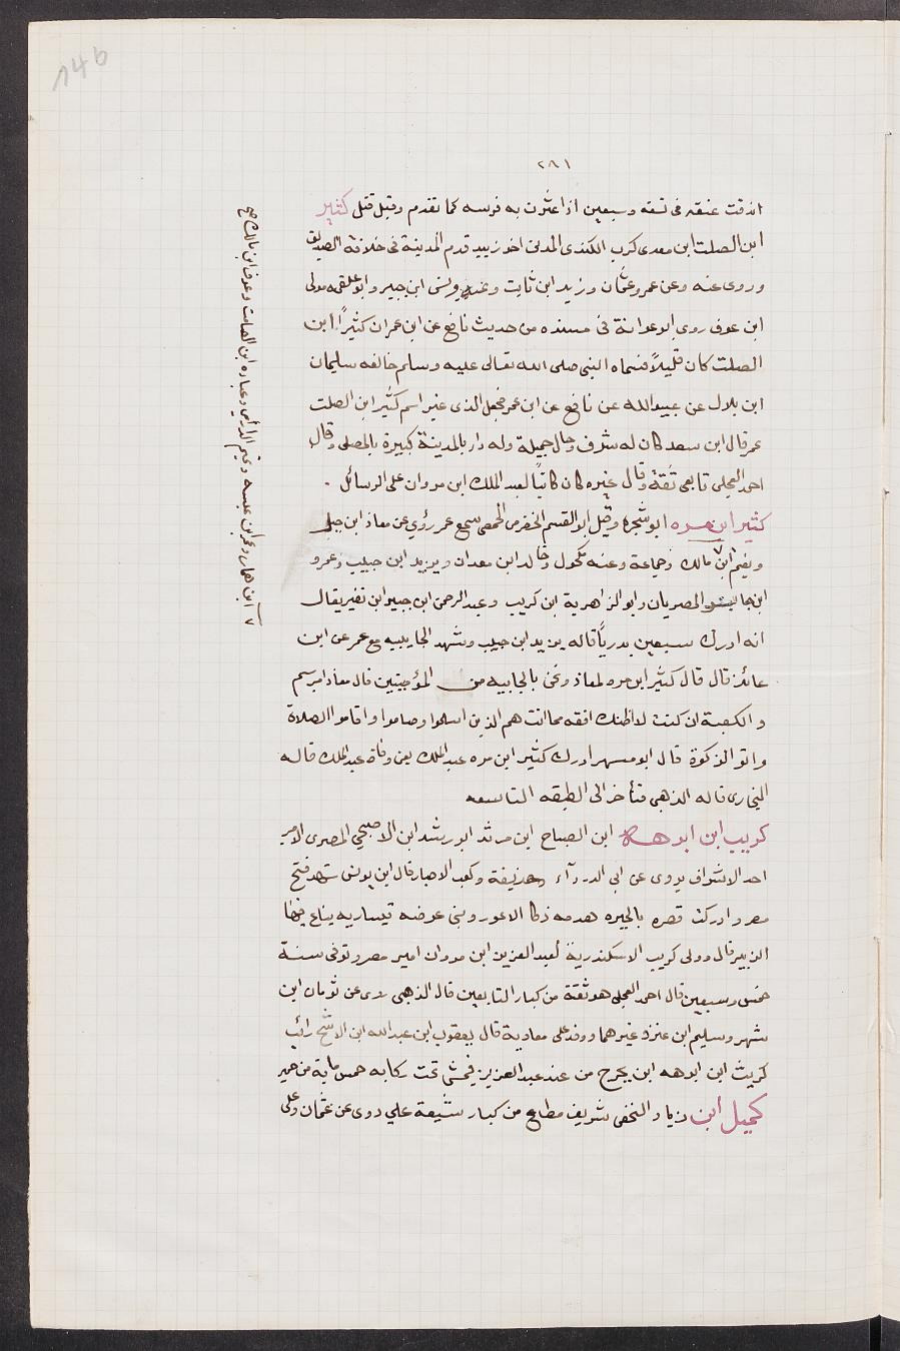 ٢٨١
اندقت عنقه فى تسعه وسبعين اذا عثرت به فرسه كما تقدم وقبل قتل كثير
ابن الصلت ابن معدى كرب الكندى المدنى اخو زبيد قدم المدينة فى خلافة الصديق
وروى عنه وعن عمر وعثمان وزيد ابن ثابت وعنه يونس ابن جبير وابو علقمه مولى
ابن عوف روى ابو عوانة فى مسنده من حديث نافع عن ابن عمر ان كثيرًا ابن
الصلت كان قليلاً فسماه النبى صلى الله تعالى عليه وسلم خالفه سليمان
ابن بلال عن عبيد الله عن نافع عن ابن عمر فجعل الذى غير اسم كثير ابن الصلت
عمر قال ابن سعد كان له شرف وحال جميلة وله دار بالمدينة كبيرة بالمصلى وقال
احمد العجلى تابعى ثقة وقال غيره كان كاتبًا لعبد الملك ابن مروان على الرسائل .
كثير ابن مره ابو شجره وقيل ابو القسم الحضرمى الحمصى سمع عمر روى عن معاذ ابن جبل
ونعيم ابن ٧ مالك وجماعة وعنه مكحول وخالد ابن معدان ويزيد ابن حبيب وعمرو
ابن جابر المصريان وابو الزاهرية ابن كريب وعبد الرحمن ابن جبير ابن نفير يقال
انه ادرك سبعين بدريًا قاله يزيد ابن حبيب وشهد الجابيه مع عمر عن ابن
عائذ قال قال كثير ابن مره لمعاذ ونحن بالجابيه من المؤمنين قال معاذ امبرسم
والكعبة ان كنت لاظنك افقه مما انت هم الذين اسلموا وصاموا واقاموا الصلاة
واتو الزكوة قال ابو مسهر ادرك كثير ابن مره عبد الملك يعنى وفاة عبد الملك قاله
البخارى قاله الذهبى فتأخر الى الطبقه التاسعه
كريب ابن ابرهه ابن الصباح ابن مرثد ابو رشد ابن الاصبحي المصرى الامير
احد الاشراف يروى عن ابى الدردآء وحذيفة وكعب الاحبار قال ابن يونس شهد فتح
مصر وادركت قصره بالجيزه هدمه ذكا الاعور وبنى عوضه قيساريه يباع فيها
البز ثم قال وولى كريب الاسكندرية لعبد العزيز ابن مروان امير مصر وتوفى سنة
خمس وسبعين قال احمد العجلى هو ثقة من كبار التابعين قال الذهبى روى عن ثوبان ابن
شهر وسليم ابن عتر وغيرهما ووفد على معاوية قال يعقوب ابن عبد الله ابن الاشج رائت
كريب ابن ابرهه ابن يخرج من عند عبد العزيز فيمشى تحت ركابه خمس ماية من حمير
كميل ابن زياد النخعى شريف مطاع من كبار شيعة علي روى عن عثمان وعلى
٧ ابن همار وعمر ابن عبسه وتميم الدارى وعباده ابن الصامت وعوف ابن مالك صح
146